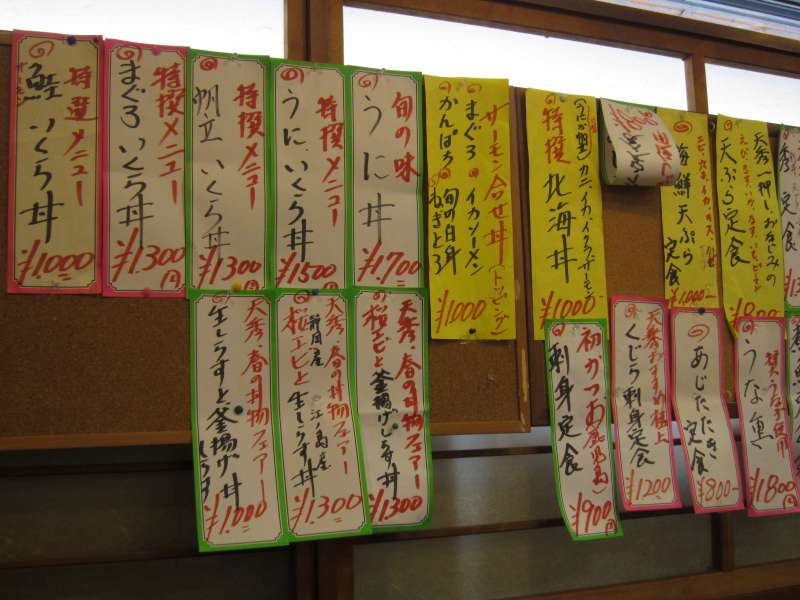 特選メニュー
鮭いくら丼
サーモン
¥1.000
特撰メニュー
まぐろいくら丼
¥1.300
特撰メニュー
帆立いくら丼
¥1300
特撰メニュー
うに、いくら丼
¥1500
旬の味
うに丼
¥1.700
サーモン合せ丼(トッピング)
まぐろ
イカソーメン
かんぱち
旬の白身
ねぎとろ
¥1000
カニ、イカ、イクラ、サーモン
特撰北海丼
¥1000
海鮮天ぷら定食
¥1.000
天ぷら定食
天秀一押しおなじみの
天秀・春の丼物フェアー
生しらすと釜揚げ丼
¥1.000
天秀・春の丼物フェアー
静岡産
桜エビと生しらす丼
江ノ島産
¥1.300
天秀・春の丼物フェアー
桜エビと釜揚げしらす丼
¥1300
初かつお(鹿児島)
刺身定食
¥900
天秀おすすめ極上
くじら刺身定食
¥1200
あじたたき定食
¥800
うな重
¥1800